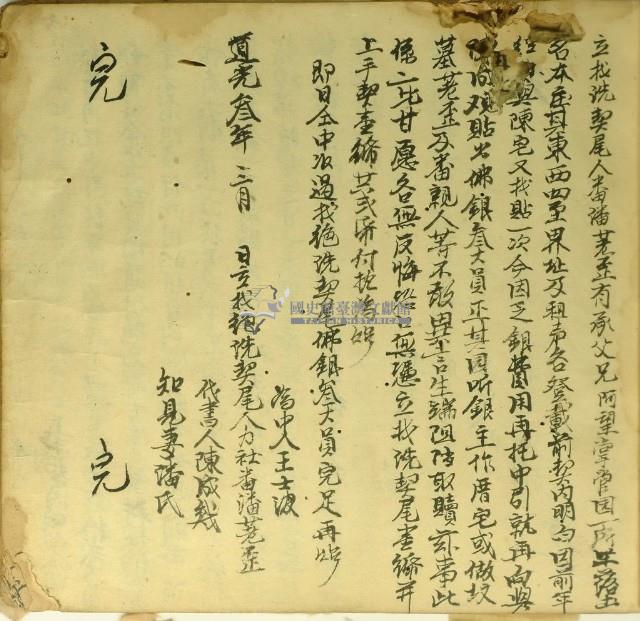 立找洗契尾人番潘荖歪有承父兄阿望掌管園一所坐落土
名本庄其東西四至界址及租声各登載前契內明白因前年
與陳宅又找貼一次今因乏銀費用再托中引就再向與
頭貼出佛銀叁大員正其園听銀主作厝宅或做坟
墓荖歪及番親人等不敢異言生端阻挡取贖亦事此
係二比甘愿各無反悔恐口無憑立找洗契尾壹紙并
上手契壹紙共弍紙付执為炤
即日仝中收過找絕洗契尾佛銀叁大員完足再炤
為中人王士波
道光叁年 三月 日立找絕洗契尾人力社番潘荖歪
代書人陳成裁
知見妻潘氏
完 完
國史館臺灣文獻館
TAIWAN HISTORICA